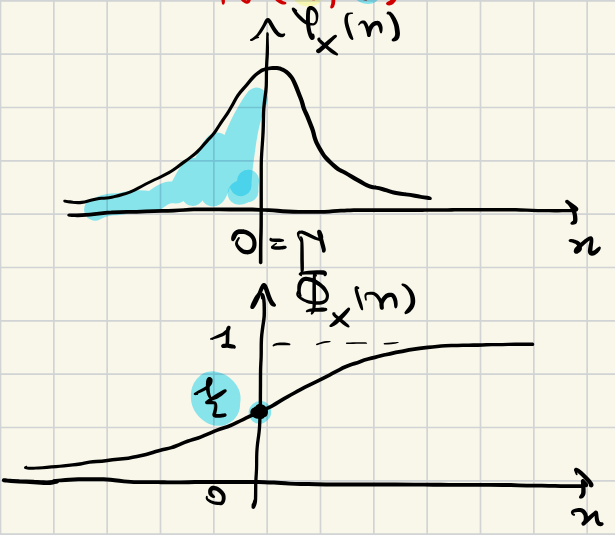 φ_X(x)
0 = μ
x
Φ_X(x)
1
½
0
x